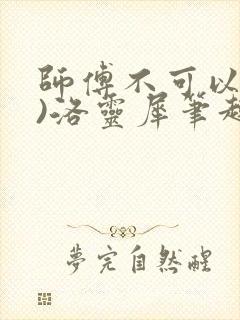 師傅不可以
)洛靈犀筆趣
夢完自然醒